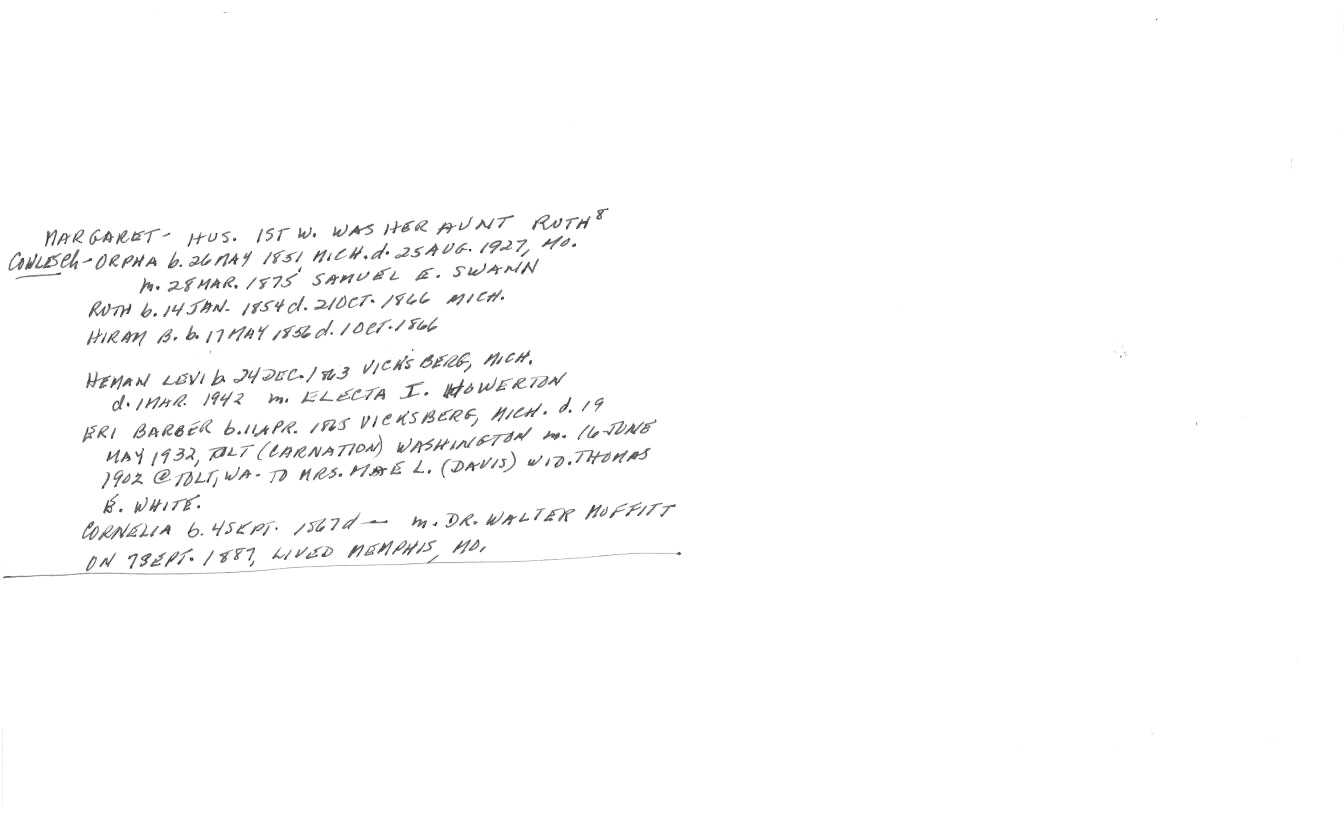 MARGARET - HUS. 1ST W. WAS HER AUNT RUTH⁸
COWLES Ch - ORPHA b. 26 MAY 1851 MICH. d. 25 AUG. 1927, MO.
m. 28 MAR. 1875 SAMUEL E. SWANN
RUTH b. 14 JAN. 1854 d. 21 OCT. 1866 MICH.
HIRAM B. b. 17 MAY 1856 d. 1 OCT. 1866
HEMAN LEVI b. 24 DEC. 1863 VICKSBERG, MICH.
d. 1 MAR. 1942 m. ELECTA I. HOWERTON
ERI BARBER b. 11 APR. 1865 VICKSBERG, MICH. d. 19
MAY 1932, TOLT (CARNATION) WASHINGTON m. 16 JUNE
1902 @ TOLT, WA - TO MRS. MAE L. (DAVIS) WID. THOMAS
E. WHITE.
CORNELIA b. 4 SEPT. 1867 d — m. DR. WALTER MOFFITT
ON 7 SEPT. 1887, LIVED MEMPHIS, MO.